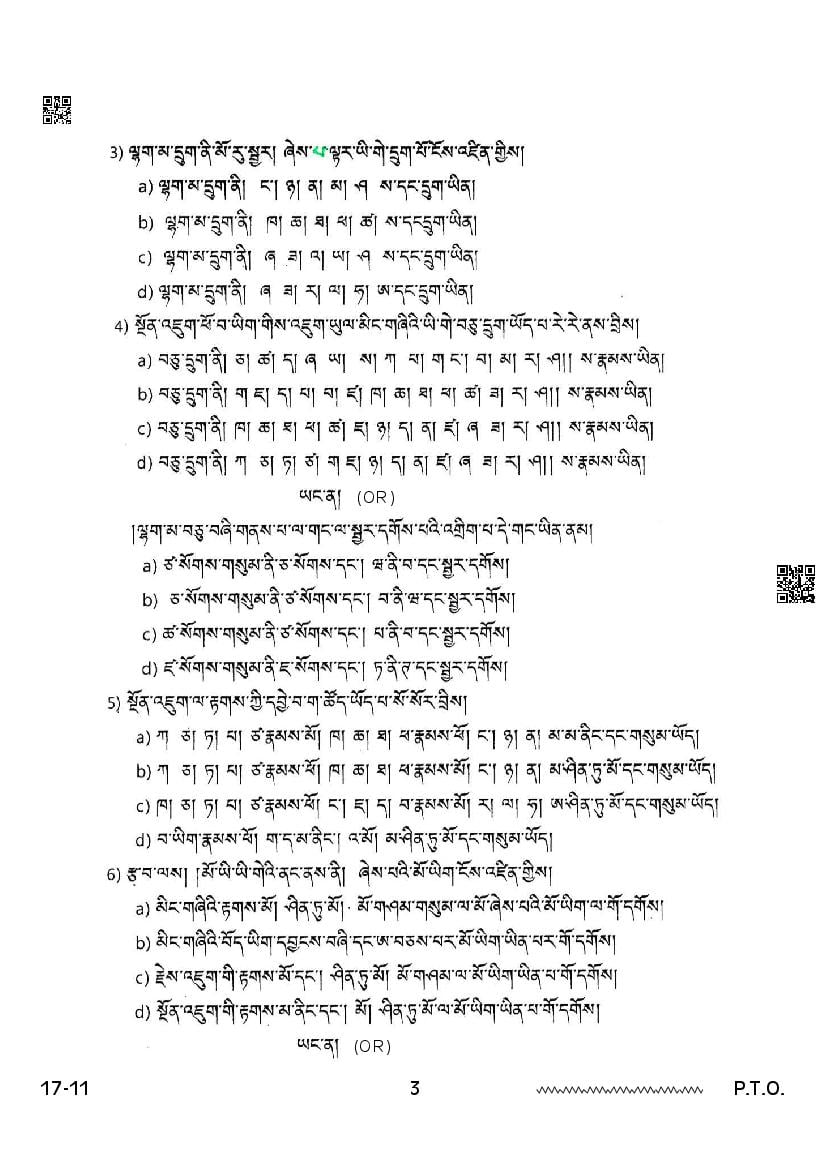 3) ལྷག་མ་དྲུག་ནི་མོ་རུ་སྦྱར། ཞེས་པ་ལྟར་ཡི་གེ་དྲུག་པོ་ངོས་འཛིན་གྱིས།
a) ལྷག་མ་དྲུག་ནི། ང་། ཉ། ན། མ། ཤ ས་དང་དྲུག་ཡིན།
b) ལྷག་མ་དྲུག་ནི། ཁ། ཆ། ཐ། ཕ། ཚ། ས་དངདྲུག་ཡིན།
c) ལྷག་མ་དྲུག་ནི། ཞ ཟ། འ། ཡ། ཤ ས་དང་དྲུག་ཡིན།
d) ལྷག་མ་དྲུག་ནི། ཞ ཟ། ར། ལ། ཧ། ཨ་དང་དྲུག་ཡིན།
4) སྔོན་འཇུག་ཕོ་བ་ཡིག་གིས་འཇུག་ཡུལ་མིང་གཞིའི་ཡི་གེ་བཅུ་དྲུག་ཡོད་པ་རེ་རེ་ནས་བྲིས།
a) བཅུ་དྲུག་ནི། ཅ། ཚ། ད། ཞ ཡ། ས། ཀ པ། ག ང་། བ། མ། ར། ཤ།། ས་རྣམས་ཡིན།
b) བཅུ་དྲུག་ནི། ག ཇ། ད། པ། བ། ཛ། ཁ། ཆ། ཐ། ཕ། ཚ། ཟ། ར། ཤ།། ས་རྣམས་ཡིན།
c) བཅུ་དྲུག་ནི། ཁ། ཆ། ཐ། ཕ། ཚ། ཇ། ཉ། ད། ན། ཛ། ཞ ཟ། ར། ཤ།། ས་རྣམས་ཡིན།
d) བཅུ་དྲུག་ནི། ཀ ཅ། ཏ། ཙ། ག ཇ། ཉ། ད། ན། ཛ། ཞ ཟ། ར། ཤ།། ས་རྣམས་ཡིན།
ཡང་ན། (OR)
།ལྷག་མ་བཅུ་བཞི་གནས་པ་ལ་གང་ལ་སྦྱར་དགོས་པའི་འགྲིག་པ་དེ་གང་ཡིན་ནམ།
a) ཙ་སོགས་གསུམ་ནི་ཅ་སོགས་དང་། ཝ་ནི་བ་དང་སྦྱར་དགོས།
b) ཅ་སོགས་གསུམ་ནི་ཙ་སོགས་དང་། བ་ནི་ཝ་དང་སྦྱར་དགོས།
c) ཚ་སོགས་གསུམ་ནི་ཙ་སོགས་དང་། པ་ནི་བ་དང་སྦྱར་དགོས།
d) ཛ་སོགས་གསུམ་ནི་ཇ་སོགས་དང་། ཏ་ནི་ད་དང་སྦྱར་དགོས།
5) སྔོན་འཇུག་ལ་རྟགས་ཀྱི་དབྱེ་བ་ག་ཚོད་ཡོད་པ་སོ་སོར་བྲིས།
a) ཀ ཅ། ཏ། པ། ཙ་རྣམས་མོ། ཁ། ཆ། ཐ། ཕ་རྣམས་ཕོ། ང་། ཉ། ན། མ་མ་ནིང་དང་གསུམ་ཡོད།
b) ཀ ཅ། ཏ། པ། ཙ་རྣམས་ཕོ། ཁ། ཆ། ཐ། ཕ་རྣམས་མོ། ང་། ཉ། ན། མ་ཤིན་ཏུ་མོ་དང་གསུམ་ཡོད།
c) ཁ། ཅ། ཏ། པ། ཙ་རྣམས་ཕོ། ང་། ཇ། ད། བ་རྣམས་མོ། ར། ལ། ཧ། ཨ་ཤིན་ཏུ་མོ་དང་གསུམ་ཡོད།
d) བ་ཡིག་རྣམས་ཕོ། ག་ད་མ་ནིང་། འ་མོ། མ་ཤིན་ཏུ་མོ་དང་གསུམ་ཡོད།
6) རྩ་བ་ལས། །མོ་ཡི་ཡི་གེའི་ནང་ནས་ནི། ཞེས་པའི་མོ་ཡིག་ངོས་འཛིན་གྱིས།
a) མིང་གཞིའི་རྟགས་མོ། ཤིན་ཏུ་མོ། མོ་གཤམ་གསུམ་ལ་མོ་ཞེས་པའི་མོ་ཡིག་ལ་གོ་དགོས།
b) མིང་གཞིའི་བོད་ཡིག་དབྱངས་བཞི་དང་ཨ་བཅས་པར་མོ་ཡིག་ཡིན་པར་གོ་དགོས།
c) རྗེས་འཇུག་གི་རྟགས་མོ་དང་། ཤིན་ཏུ་མོ། མོ་གཤམ་ལ་མོ་ཡིག་ཡིན་པ་གོ་དགོས།
d) སྔོན་འཇུག་གི་རྟགས་མ་ནིང་དང་། མོ། ཤིན་ཏུ་མོ་ལ་མོ་ཡིག་ཡིན་པ་གོ་དགོས།
ཡང་ན། (OR)
17-11 3 P.T.O.